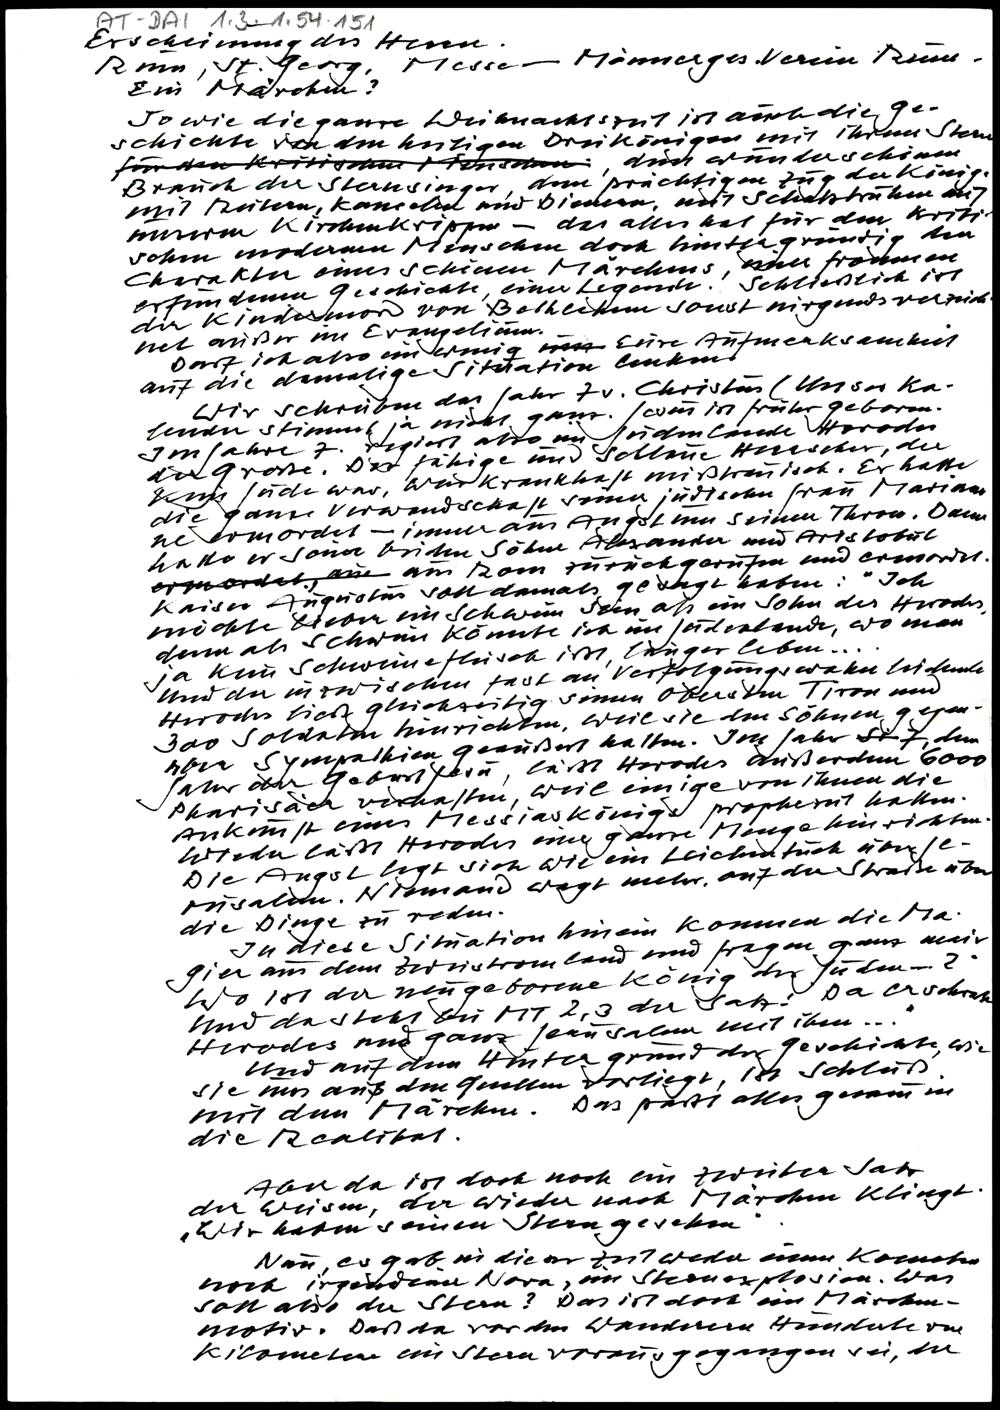 AT-DAI 1.3-1.54.151
Erscheinung des Herrn.
Rum, St. Georg, Messe — Männerges.Verein Rum.
Ein Märchen?
So wie die ganze Weihnachtszeit ist auch die Ge-
schichte von den heiligen Dreikönigen mit ihrem Stern
für den kritischen Menschen, dem wunderschönen
Brauch der Sternsinger, dem prächtigen Zug der Könige
mit Reitern, Kamelen und Dienern, mit Schatztruhen auf
unseren Kirchenkrippen — das alles hat für den kriti-
schen modernen Menschen doch hintergründig den
Charakter eines schönen Märchens, einer frommen
erfundenen Geschichte, einer Legende. Schließlich ist
der Kindermord von Bethlehem sonst nirgends verzeich-
net außer im Evangelium.
Darf ich also ein wenig Eure Aufmerksamkeit
auf die damalige Situation lenken
Wir schreiben das Jahr 7 v. Christus (Unser Ka-
lender stimmt ja nicht ganz. Jesus ist früher geboren.
Im Jahre 7. regiert also im Judenlande Herodes
der Große. Der fähige und schlaue Herrscher, der
kein Jude war, war krankhaft mißtrauisch. Er hatte
die ganze Verwandschaft seiner jüdischen Frau Mariam
ne ermordet — immer aus Angst um seinen Thron. Dann
hatte er seine beiden Söhne Alexander und Aristobul
ermordet, aus Rom zurückgerufen und ermordet.
Kaiser Augustus soll damals gesagt haben: "Ich
möchte lieber ein Schwein sein als ein Sohn des Herodes,
denn als Schwein könnte ich im Judenlande, wo man
ja kein Schweinefleisch ißt, länger leben....
Und der inzwischen fast an Verfolgungswahn leidende
Herodes ließ gleichzeitig seinen Obersten Tiron und
300 Soldaten hinrichten, weil sie den Söhnen gegen-
über Sympathien geäußert hatten. Im Jahr 7, dem
Jahr der Geburt Jesu, läßt Herodes außerdem 6000
Pharisäer verhaften, weil einige von ihnen die
Ankunft eines Messiaskönigs prophezeit hatten.
Wieder läßt Herodes eine ganze Menge hinrichten.
Die Angst legt sich wie ein Leichentuch über Je-
rusalem. Niemand wagt mehr, auf der Straße über
die Dinge zu reden.
In diese Situation hinein kommen die Ma-
gier aus dem Zweistromland und fragen ganz naiv
Wo ist der neugeborene König der Juden —?"
Und da steht bei MT 2,3 der Satz: "Da erschrak
Herodes und ganz Jerusalem mit ihm..."
Und auf dem Hintergrund der Geschichte, wie
sie uns aus den Quellen vorliegt, ist Schluß
mit dem Märchen. Das paßt alles genau in
die Realität.
Aber da ist doch noch ein zweiter Satz
der Weisen, der wieder nach Märchen klingt.
„Wir haben seinen Stern gesehen".
Nun, es gab in dieser Zeit weder einen Kometen
noch irgendeine Nova, eine Sternexplosion. Was
soll also der Stern? Das ist doch ein Märchen-
motiv. Daß da vor den Wanderern Hunderte von
Kilometern ein Stern vorausgegangen sei, der